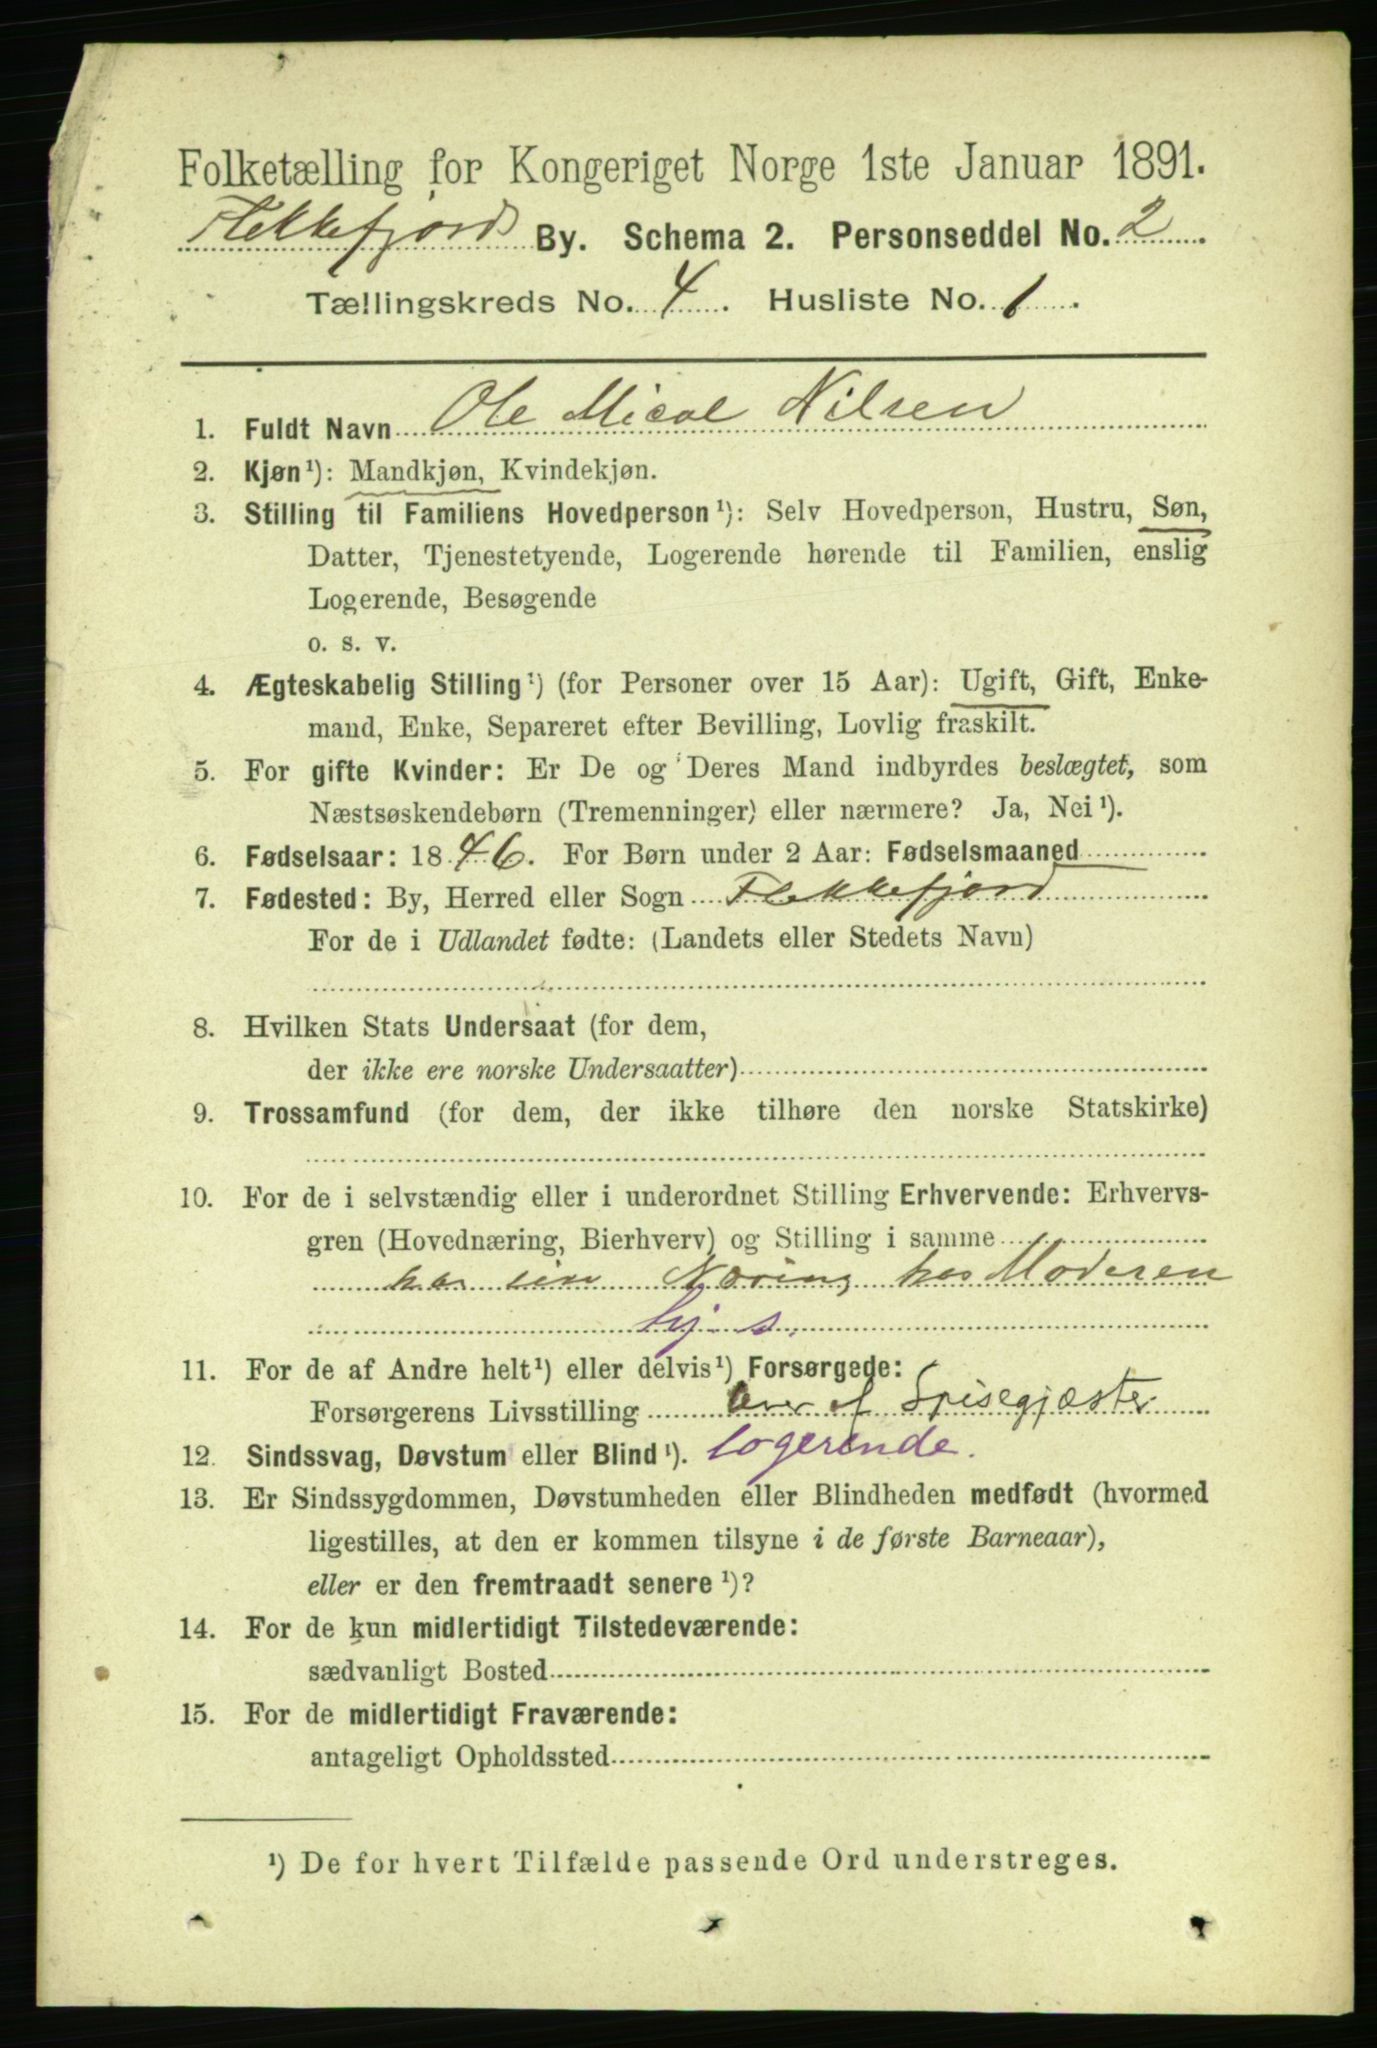 Folketælling for Kongeriget Norge 1ste Januar 1891.
Flekkefjord By. Schema 2. Personseddel No. 2
Tællingskreds No. 4. Husliste No. 1.
1. Fuldt Navn Ole Mical Nilsen
2. Kjøn¹): Mandkjøn, Kvindekjøn.
3. Stilling til Familiens Hovedperson¹): Selv Hovedperson, Hustru, Søn,
Datter, Tjenestetyende, Logerende hørende til Familien, enslig
Logerende, Besøgende
o. s. v.
4. Ægteskabelig Stilling¹) (for Personer over 15 Aar): Ugift, Gift, Enke-
mand, Enke, Separeret efter Bevilling, Lovlig fraskilt.
5. For gifte Kvinder: Er De og Deres Mand indbyrdes beslægtet, som
Næstsøskendebørn (Tremenninger) eller nærmere? Ja, Nei¹).
6. Fødselsaar: 1846. For Børn under 2 Aar: Fødselsmaaned
7. Fødested: By, Herred eller Sogn Flekkefjord
For de i Udlandet fødte: (Landets eller Stedets Navn)
8. Hvilken Stats Undersaat (for dem,
der ikke ere norske Undersaatter)
9. Trossamfund (for dem, der ikke tilhøre den norske Statskirke)
10. For de i selvstændig eller i underordnet Stilling Erhvervende: Erhvervs-
gren (Hovednæring, Bierhverv) og Stilling i samme
har sin Næring hos Moderen
11. For de af Andre helt¹) eller delvis¹) Forsørgede:
Forsørgerens Livsstilling lever af Spisegjæster
logerende.
12. Sindssvag, Døvstum eller Blind¹).
13. Er Sindssygdommen, Døvstumheden eller Blindheden medfødt (hvormed
ligestilles, at den er kommen tilsyne i de første Barneaar),
eller er den fremtraadt senere¹)?
14. For de kun midlertidigt Tilstedeværende:
sædvanligt Bosted
15. For de midlertidigt Fraværende:
antageligt Opholdssted
¹) De for hvert Tilfælde passende Ord understreges.